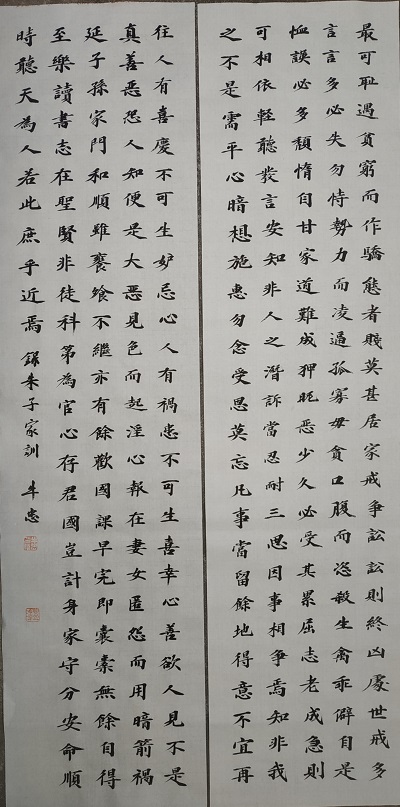 最可耻遇貧窮而作驕態者賤莫甚居家戒爭訟訟則終凶處世戒多
言言多必失勿恃勢力而凌逼孤寡毋貪口腹而恣殺生禽乖僻自是
恤誤必多頹惰自甘家道難成狎昵惡少久必受其累屈志老成急則
可相依輕聽發言安知非人之潛訴當忍耐三思因事相爭焉知非我
之不是需平心暗想施惠勿念受恩莫忘凡事當留餘地得意不宜再
往人有喜慶不可生妒忌心人有禍患不可生喜幸心善欲人見不是
真善惡恐人知便是大惡見色而起淫心報在妻女匿怨而用暗箭禍
延子孫家門和順雖饔飧不繼亦有餘歡國課早完即囊橐無餘自得
至樂讀書志在聖賢非徒科第為官心存君國豈計身家守分安命順
時聽天為人若此庶乎近焉 錄朱子家訓 牟忠